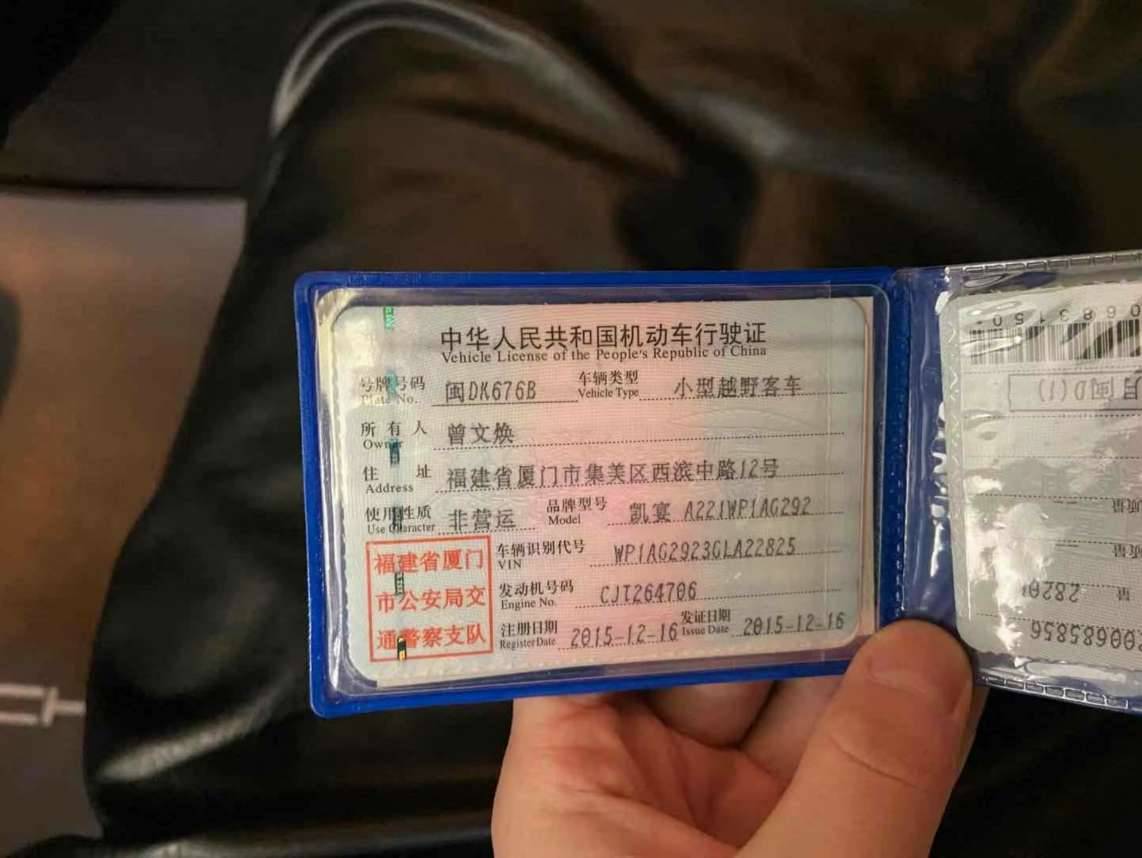 中华人民共和国机动车行驶证
Vehicle License of the People's Republic of China
号牌号码 闽DK676B 车辆类型 小型越野客车
Plate No. Vehicle Type
所有人 曾文焕
Owner
住址 福建省厦门市集美区西滨中路12号
Address
使用性质 非营运 品牌型号 凯宴 A221WP1AG292
Use Character Model
福建省厦门
市公安局交
通警察支队
车辆识别代号 WP1AG2923GLA22825
VIN
发动机号码 CJT264706
Engine No.
注册日期 2015-12-16 发证日期 2015-12-16
Register Date Issue Date